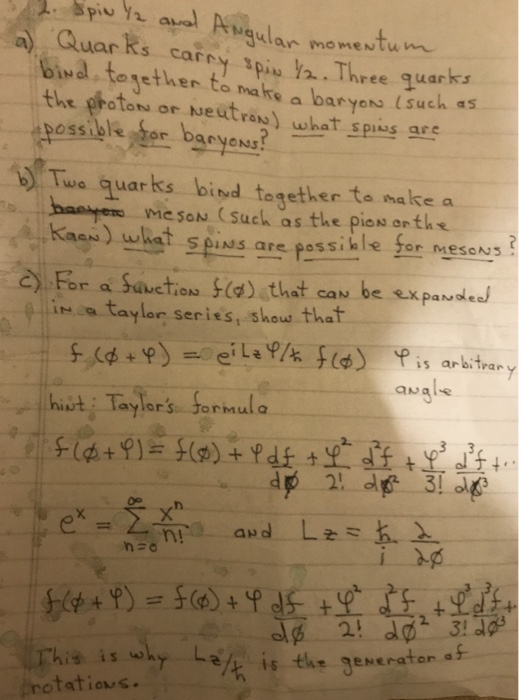 2. Spin ½ and Angular momentum
a) Quarks carry spin ½. Three quarks
bind together to make a baryon (such as
the proton or neutron) what spins are
possible for baryons?
b) Two quarks bind together to make a
baryon meson (such as the pion or the
Kaon) what spins are possible for mesons?
c) For a function f(φ) that can be expanded
in a taylor series, show that
f(φ+φ) = e^{iLzφ/ħ} f(φ) φ is arbitrary
angle
hint: Taylor's formula
f(φ+φ) = f(φ) + φ df/dφ + φ²/2! d²f/dφ² + φ³/3! d³f/dφ³ + ..
e^x = Σ_{n=0}^{∞} x^n/n! and Lz = ħ/i ∂/∂φ
f(φ+φ) = f(φ) + φ df/dφ + φ²/2! d²f/dφ² + φ³/3! d³f/dφ³ +
This is why Lz/ħ is the generator of
rotations.